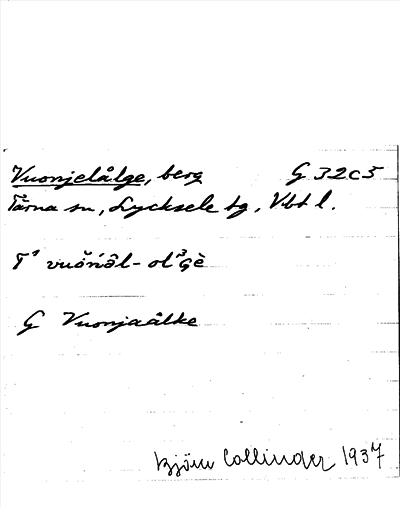 Vuonjelålge, berg G 32c5
Tärna sn, Lycksele tg, Vbt l.
T¹ vuǒńâl-ol³Gè
G Vuonjaålke
Björn Collinder 1937